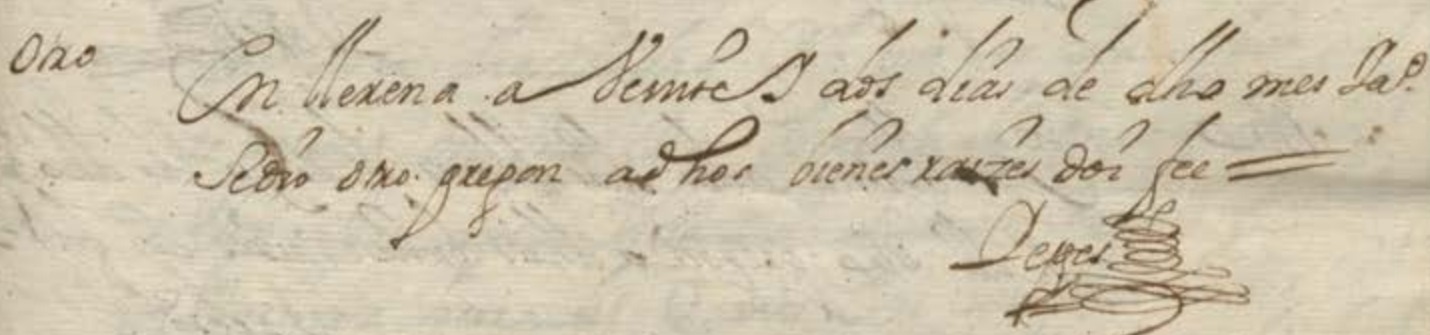 otro
En llerena a Veinte y dos dias de dho mes
Se dio otro pregon a dhos bienes raizes doi fee =